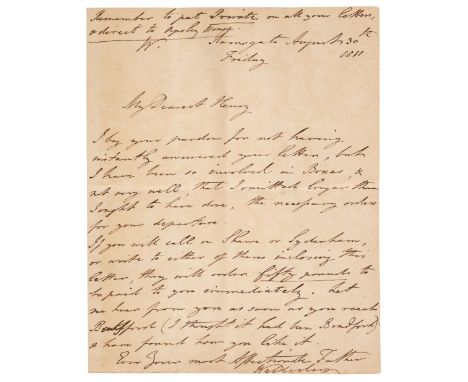 Remember to put Private on all your letters,
& direct to Apsley House.
W. Ramsgate August 30th
Friday 1811
My Dearest Henry
I beg your pardon for not having
instantly answered your letter, but
I have been so involved in Boxes, &
not very well, that I omitted longer than
I ought to have done, the necessary orders
for your departure.
If you will call on Shawe or Sydenham,
or write to either of them inclosing this
letter, they will order fifty pounds to
be paid to you immediately. Let
me hear from you as soon as you reach
(I thought it had been Bradford)
& have found how you like it.
Ever Your most Affectionate Father
Wellesley